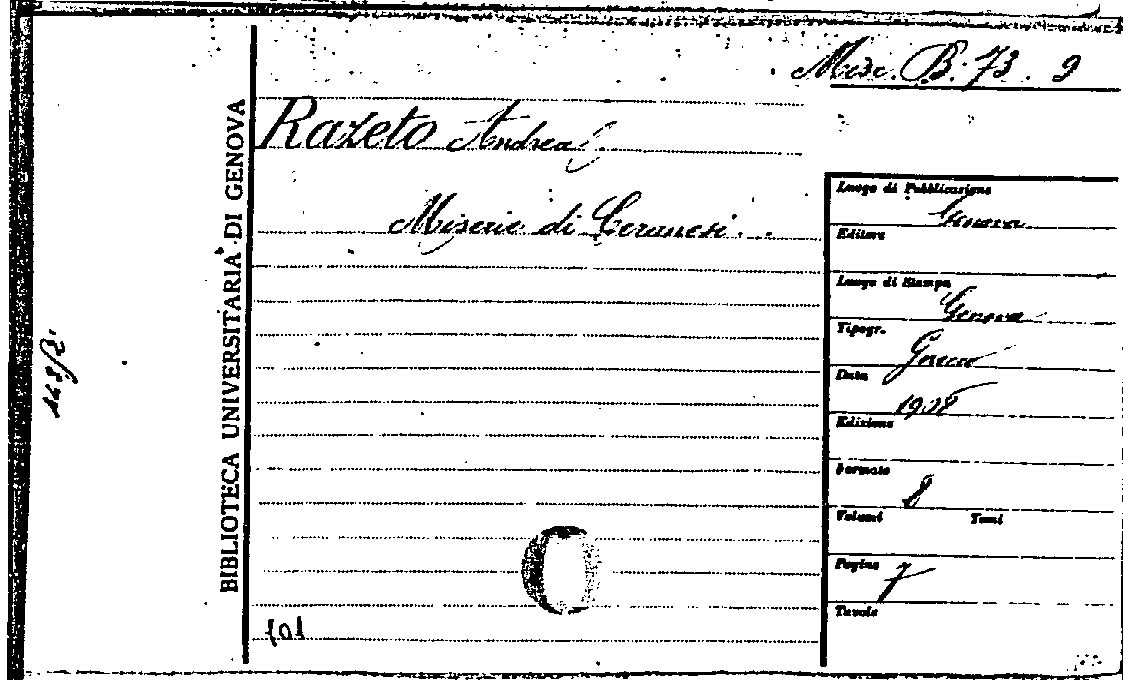 Misc. B. 73. 9
Razeto Andrea
Miserie di Ceranesi...
BIBLIOTECA UNIVERSITARIA DI GENOVA
Luogo di Pubblicazione
Genova
Editore
Luogo di Stampa
Genova
Tipogr.
Data
Edizione
Formato
8
Volumi Tomi
Pagine
7
Tavole